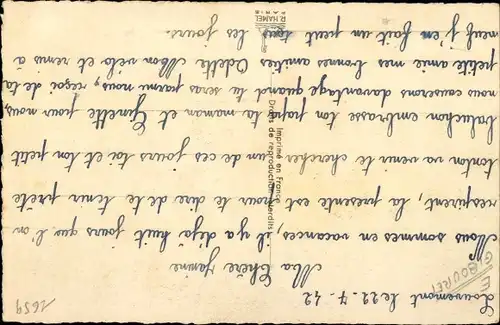 Louvemont le 22-7-42
Ma Chère Janine
Nous sommes en vacances, il y a déjà huit jours que l'on
respirent, la presente est pour te dire de te tenir prête
tonton va venir te chercher un de ces jours toi et ton petit
baluchon embrasse ton papa, ta maman et Ginette pour nous,
nous causerons davantage quand tu seras parmi nous, reçoi de ta
petite amie mes bonnes amities Odette Mon vélo et remis à
neuf j'en fait un peut tous les jours.
Imprimé en France
Droits de reproduction interdits
R. HAMEL
PARIS
1659